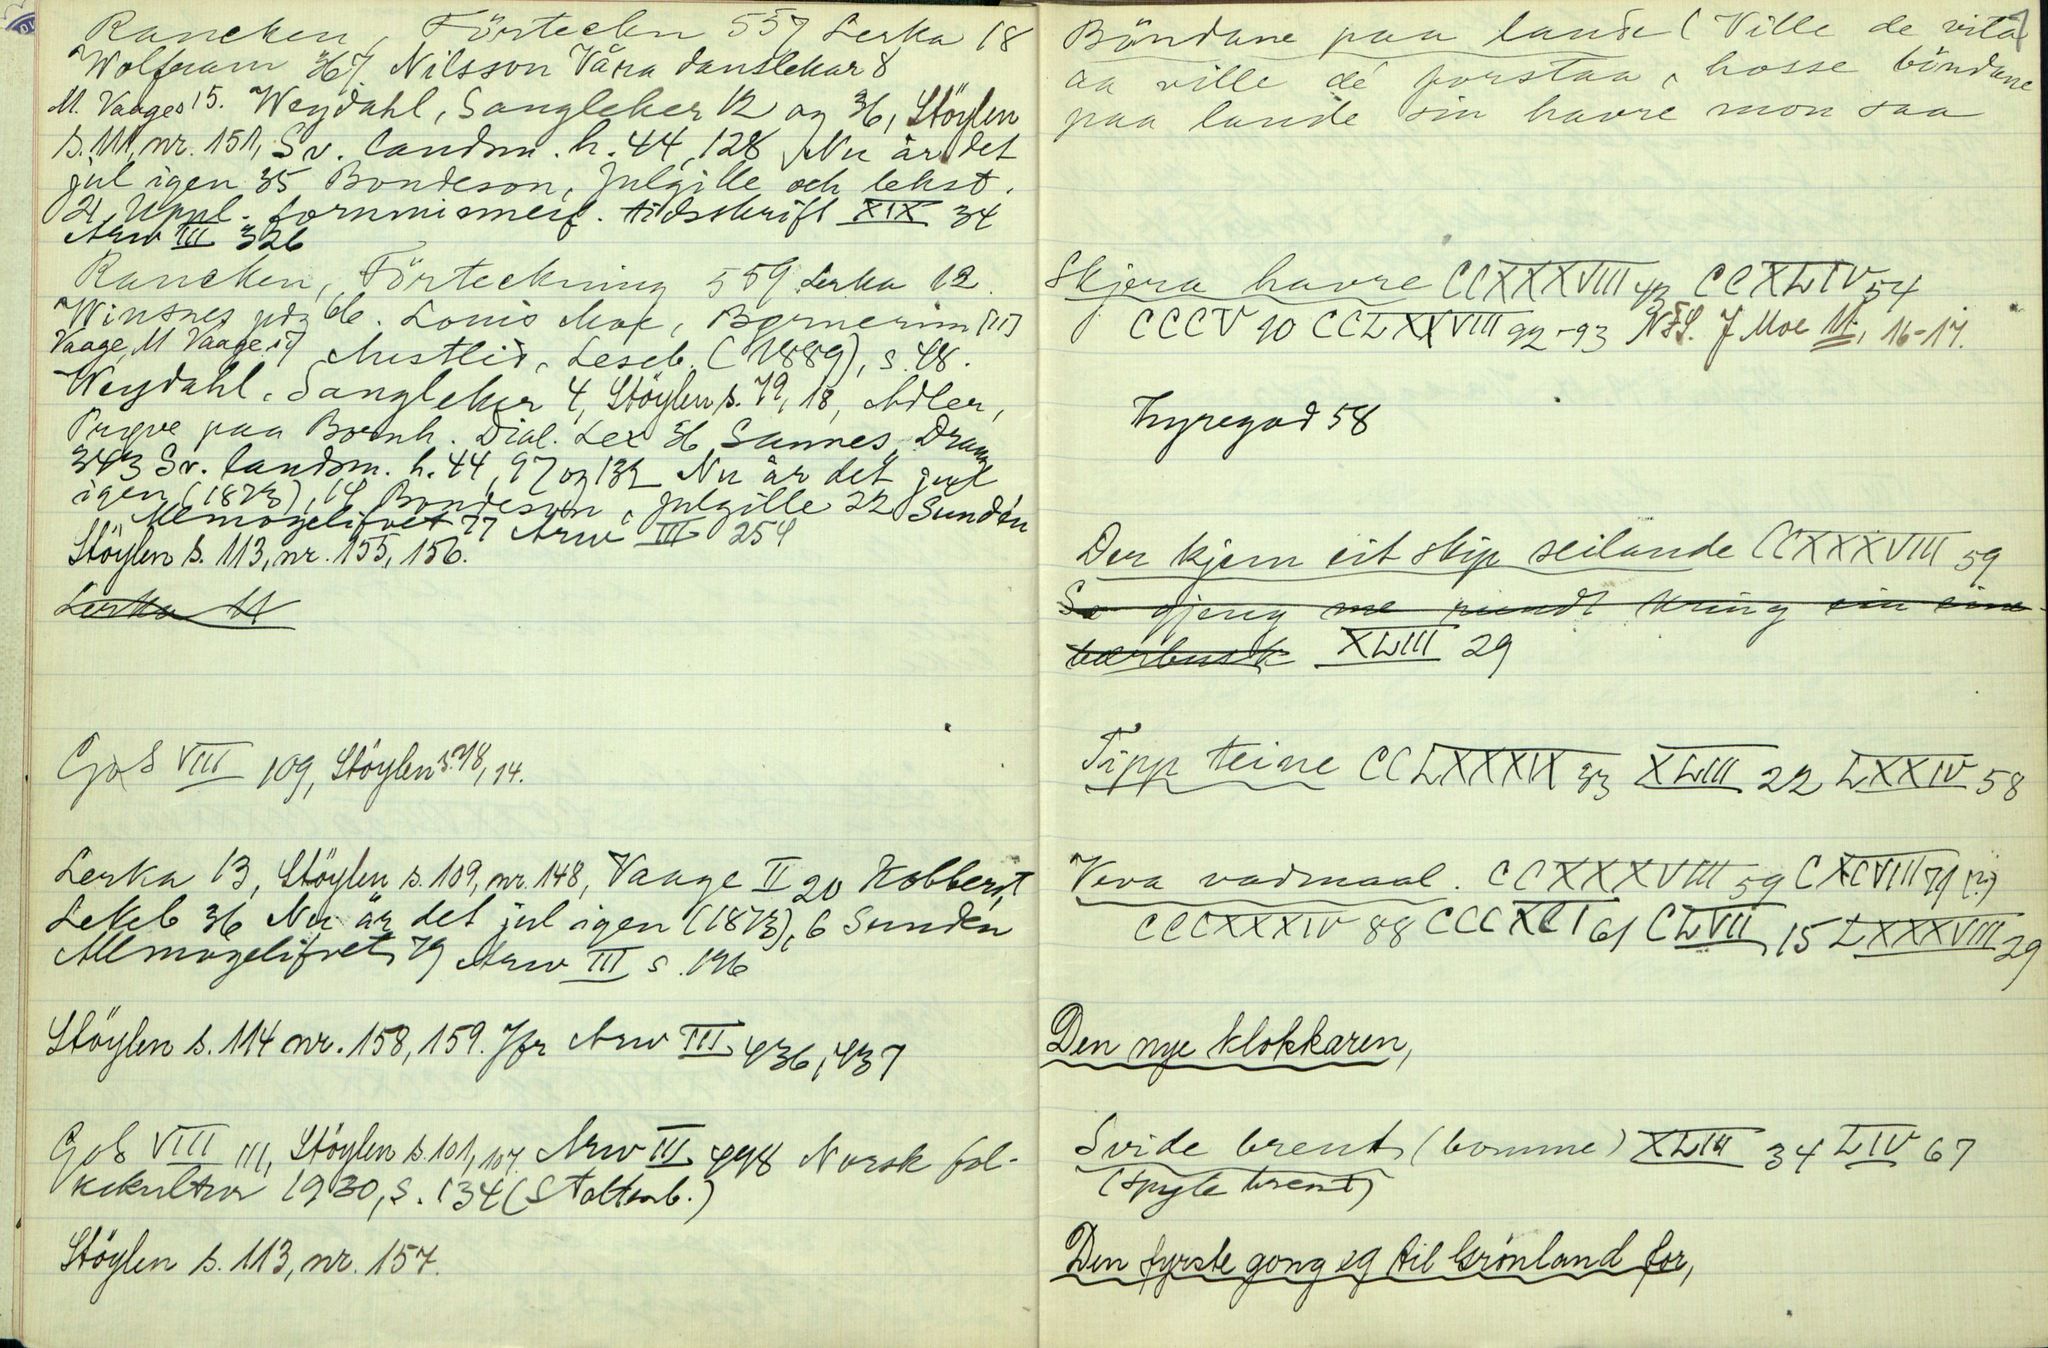 Rancken, Förtecln 557 Lerka 18
Wolfram 367. Nilsson Våra danslekar 8
M. Vaage 15. Weydahl, Sangleker 12 og 36, Støylen
s. 111, nr. 151, Sv. landsm. h. 44, 128 Nu är det
jul igen 35 Bondeson, Julgille och lekst.
21, Uppl. fornminnesf. tidsskrift XIX 34
Arw III 326
Rancken, Förteckning 559 Lerka 12.
Winsnes 66. Louis Moe, Børnerim [11]
Vaage, M Vaage 17 Austlid, Leseb. (1889), s. 48.
Weydahl, Sangleker 4, Støylen s. 79, 18, Adler,
Prøve paa Bornh. Dial. Lex 36 Sannes,
343 Sv. landsm. h. 44, 97 og 132 Nu är det jul
igen (1873), 14 Bondeson, Julgille 22 Sundén
Allmogelifvet 77 Arw III 254
Støylen s. 113, nr. 155, 156.
Lerka 11
GoS VIII 109, Støylen s. 78, 14.
Lerka 13, Støylen s. 109, nr. 148, Vaage II 20 Kobberst,
Lekeb 36 Nu är det jul igen (1873), 6 Sundén
Allmogelifvet 79 Arw III s. 196
Støylen s. 114 nr. 158, 159. Jfr Arw III 436, 437
GoS VIII 111, Støylen s. 101, 107. Arw III 448 Norsk fol-
kekultur 1930, s. 134 (Stoltenb.)
Støylen s. 113, nr. 157.
Böndane paa lande (Ville de vita
aa ville de forstaa, hosse böndane
paa lande sin havre mon saa
Skjera havre CCXXXVIII 43 CCXLIV 54
CCCV 90 CCLXXVIII 92-93 NFS. J Moe 16-17.
Lyregod 58
Der kjem eit skip seilande CCXXXVIII 59
So gjeng me rundt kring ein eine-
bærbusk XLIII 29
Tipp teine CCLXXXIX 33 XLIII 22 LXXIV 58
Veva vadmaal. CCXXXVIII 59 CXCVIII 79 (?)
CCCXXXIV 88 CCCXCI 61 CLVII 15 LXXXVIII 29
Den nye klokkaren,
Svide brent (bomme) XLIII 34 LIV 67
(spyle brent)
Den fyrste gong eg til Grønland for,